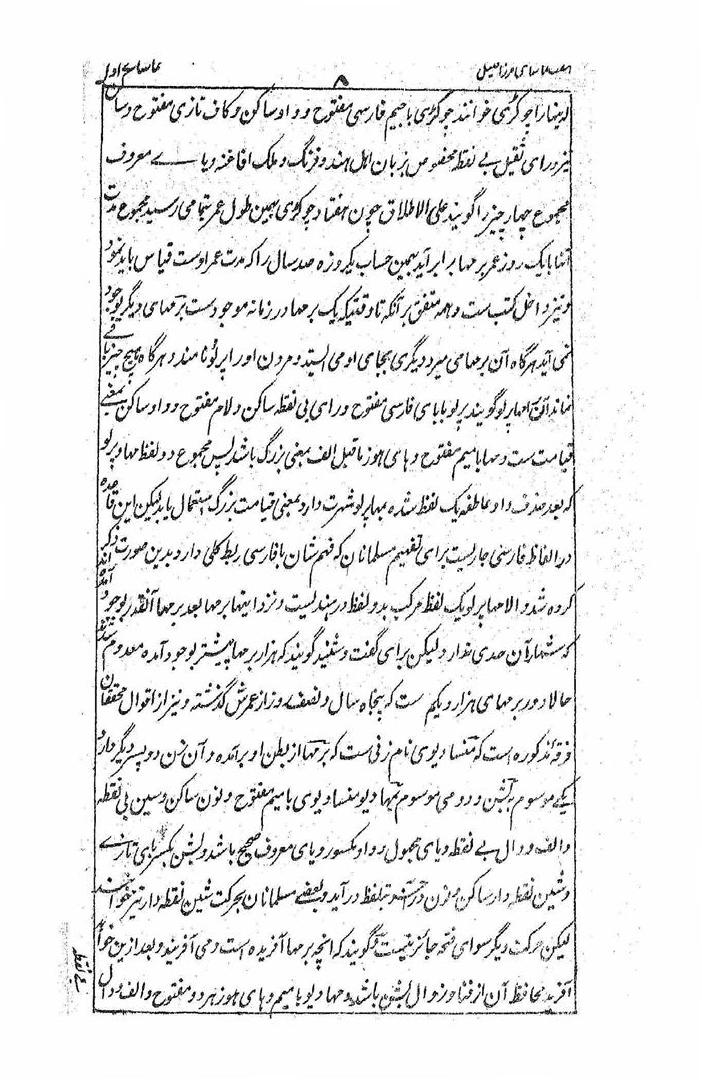 ۸
اینها را چوکڑی خوانند چوکڑی با جیم فارسی مفتوح و واو ساکن و کاف تازی مفتوح و
نیز و رای ثقیل بے نقطه مخصوص زبان اهل هند و فرنگ و ملک افاغنه و یاے معروف
مجموع چهار چیز را گویند علی الاطلاق چون هفتاد چوکڑی بهمین طول عمر بتمامی رسید مجموع مدت
آنها با یک روز عمر برمها برابر آید بهمین حساب یکروزه صد سال را که مدت عمر اوست قیاس باید نمود
و نیز داخل کتب ست و همه متفق برآنکه تا وقتیکه یک برمها در زمانه موجود ست برمهای دیگر بوجود
نمی آید هرگاه آن برمها می میرد دیگری بجای او می ایستد و مردن او را پرلو نامند و هرگاه هیچ چیز باقے
نماند آنرا مهاپرلو گویند پرلو با بای فارسی مفتوح و رای بی نقطه ساکن و لام مفتوح و واو ساکن بمعنے
قیامت ست و مها با میم مفتوح و های هوز ماقبل الف بمعنی بزرگ باشد پس مجموع دو لفظ مها و پرلو
که بعد حذف واو عاطفه یک لفظ شده بمهاپرلو شهرت دارد بمعنی قیامت بزرگ استعمال یابد لیکن این قاعده
در الفاظ فارسی جاریست برای تفهیم مسلمانان که فهم شان با فارسی ربط کلی دارد بدین صورت ذکر
کرده شد و الا مهاپرلو یک لفظ مرکب بدو لفظ در هندیست و نزد اینها برمها بعد برمها آنقدر بوجود آمده اند
که شمار آن حدی ندارد لیکن برای گفت و شنید گویند که هزار برمها پیشتر بوجود آمده معدوم شده
حالا دور برمهای هزار و یکم ست که پنجاه سال و نصف روز از عمرش گذشته و نیز از اقوال محققان
فرقه مذکوره است که منسا دیوی نام زنی است که برمها از بطن او برآمده و آن زن دو پسر دیگر دارد
یکے موسوم به بشن و دومی موسوم بمها دیو منسا دیوی با میم مفتوح و نون ساکن و سین بی نقطه
و الف و دال بے نقطه و یای مجهول و واو مکسور و یای معروف صحیح باشد و بشن بکسر بای تازے
و شین نقطه دار ساکن و نون در آخر بتلفظ در آید و بعضے مسلمانان بحرکت شین نقطه دار نیز خوانند
لیکن حرکت دیگر سوای فتحه جائز نیست و گویند که انچه برمها آفریده است و می آفریند و بعد ازین خواهد
آفرید محافظ آن از فنا و زوال بشن باشد و مها دیو با میم و های هوز هر دو مفتوح و الف و دال
بے نقطه